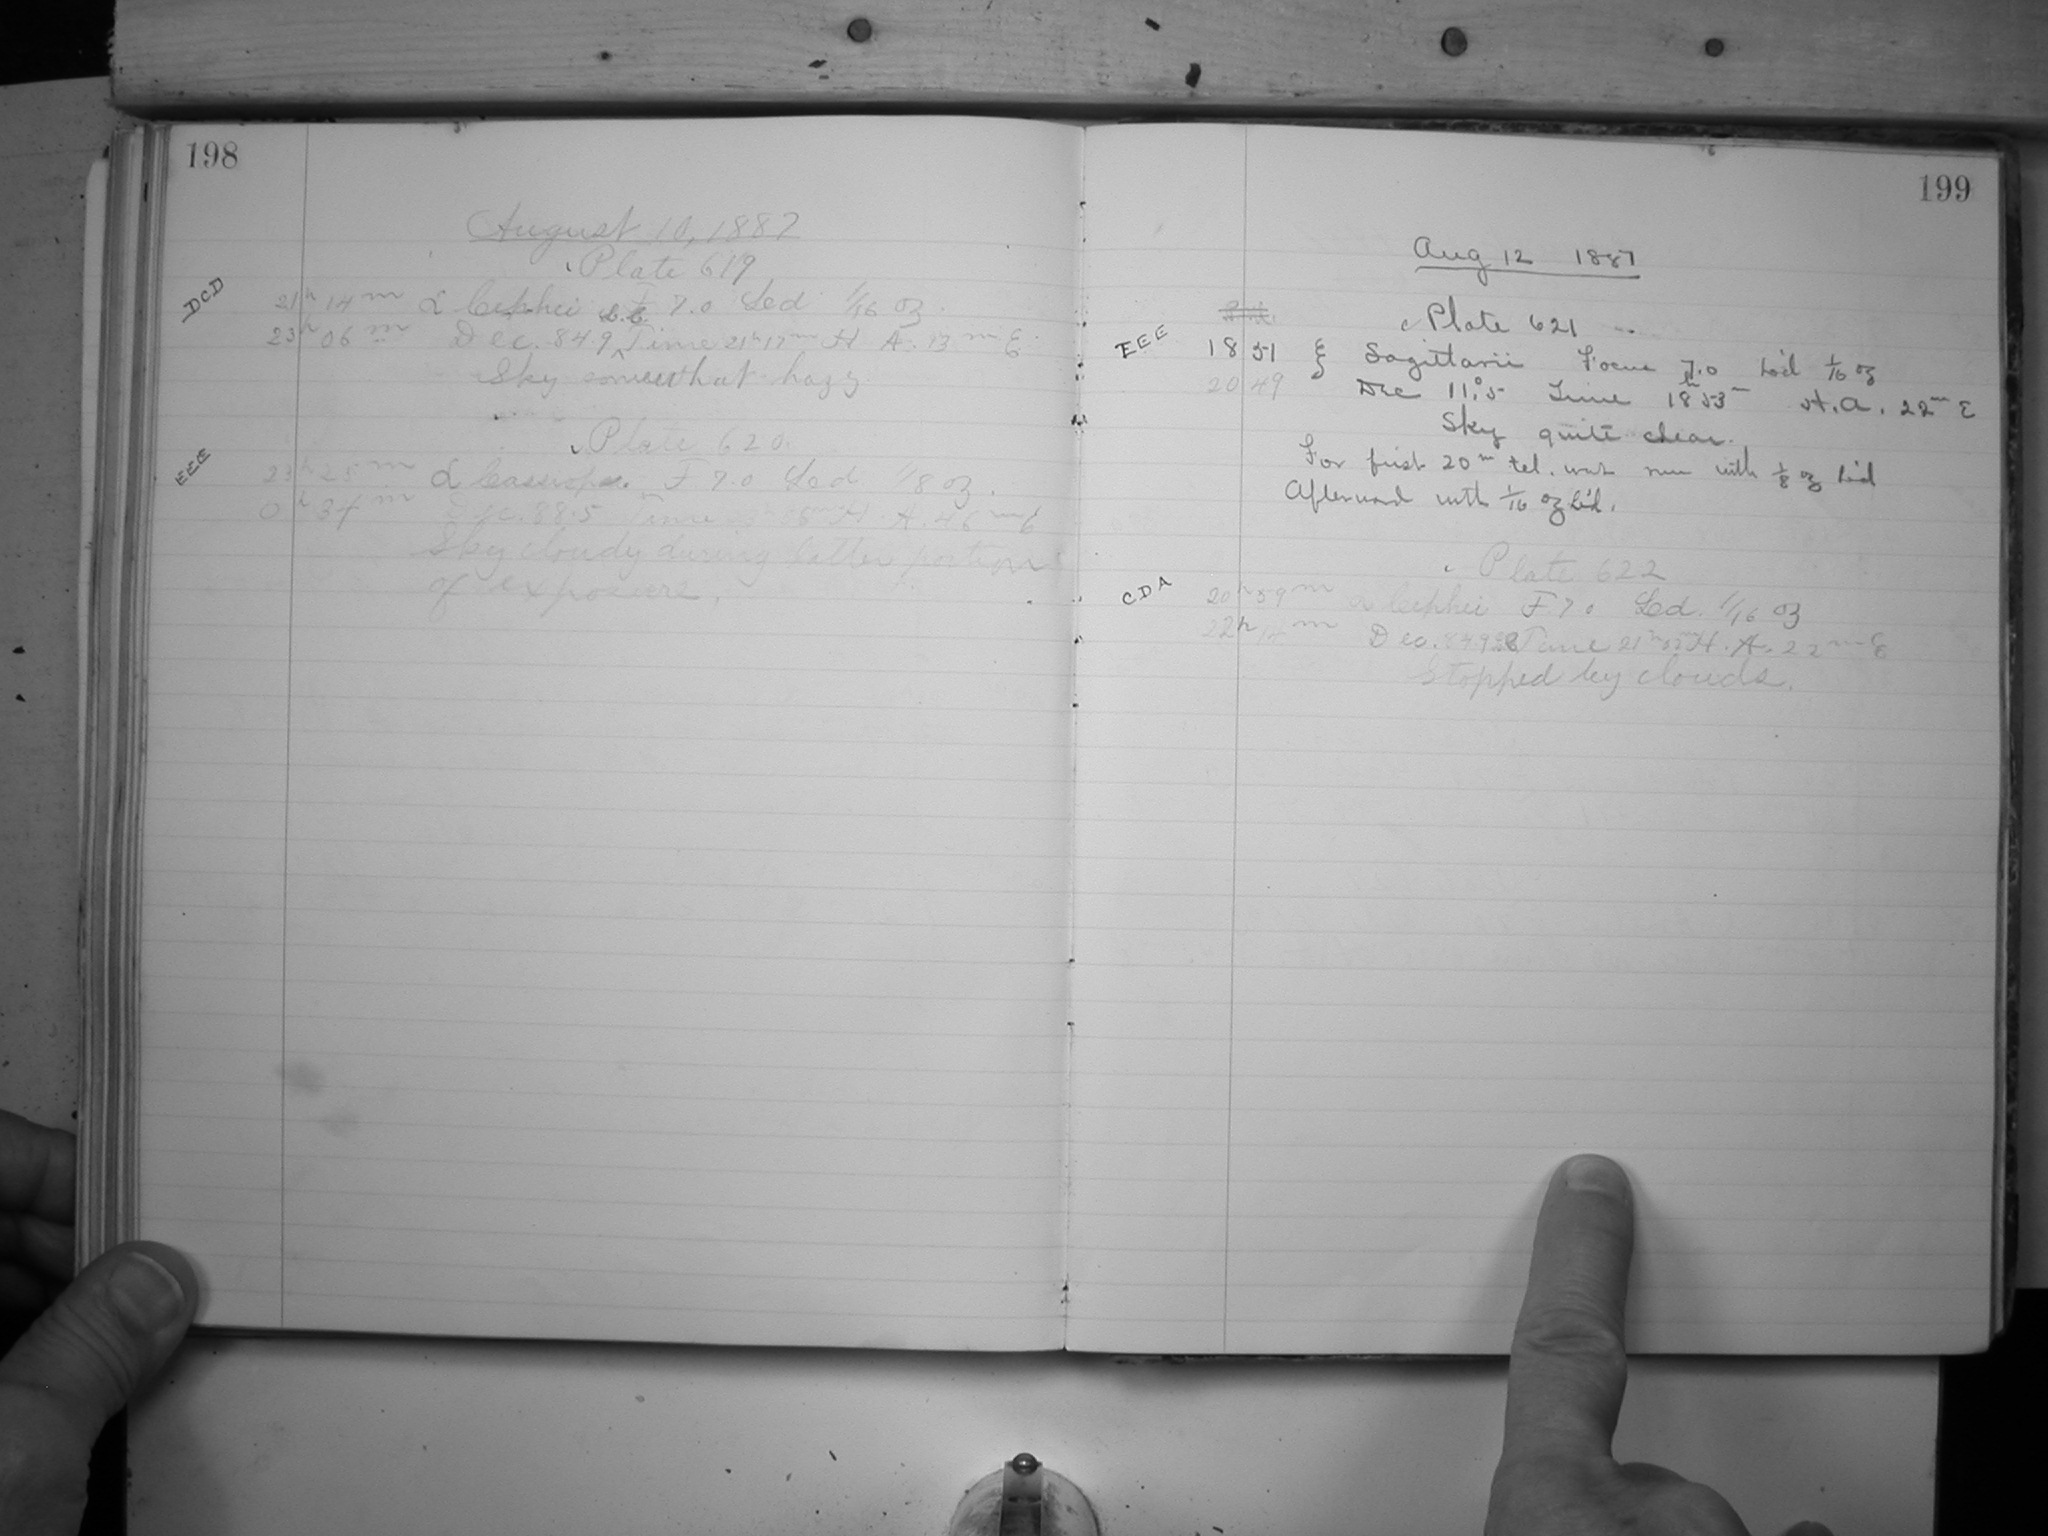 198
August 10, 1887
Plate 619
DCD
21h 14m α Cephei F 7.0 Led 1/16 oz.
23h 06m Dec. 84.9 Time 21h 17m H A. 13m E
Sky somewhat hazy
Plate 620.
EEE
23h 25m α Cassiopeæ F 7.0 Led 1/8 oz.
0h 34m Dec. 88.5 Time H. A. 46m E
Sky cloudy during latter portion
of exposure.
199
Aug 12 1887
Plate 621
EEE
18 51 ξ Sagittarii Focus 7.0 Led 1/16 oz
20 49 Dec 11°.5 Time 18h 53m H.A. 22m E
Sky quite clear.
For first 20m tel. was run with 1/8 oz Led
Afterward with 1/16 oz Led.
Plate 622
CDA
20h 59m α Cephei F 7.0 Led. 1/16 oz
22h 14m Dec. 84.9 Time 21h H. A. 22m E
Stopped by clouds.